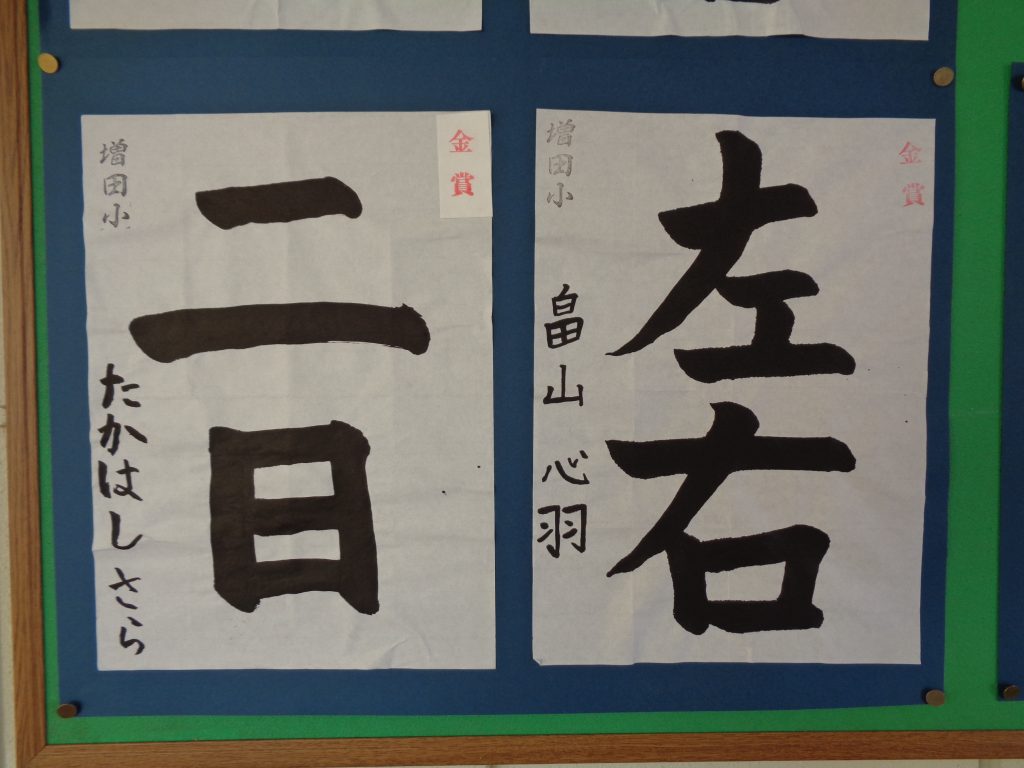 金賞
左右
増田小
畠山心羽
金賞
二日
増田小
たかはしさら